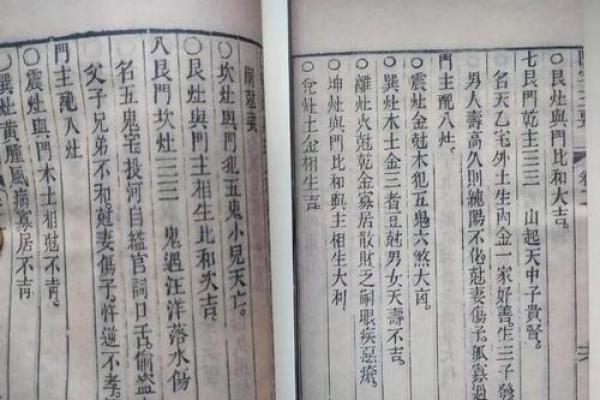 ○艮灶與門比和大吉。
七艮門乾主三三　山起天中子貴賢。
○名天乙宅外土生內金一家好善生三子發
男人壽高久則純陽不化尅妻傷子孤寡過
門主配八灶。
○震灶金尅木犯五鬼六煞大凶。
○巽灶木土金三者互尅男女夭壽不吉。
○離灶火尅乾金寡居散財乏嗣眼疾惡瘡。
○坤灶與門比和與主相生大利
○兌灶土金相生吉。
○坎灶與門犯五鬼小兒夭亡。
○艮灶與門主相生比和次吉。
八艮門坎灶三三　鬼遇汪洋落水傷
名五鬼宅投河自縊官詞口舌偷盜
父子兄弟不和尅妻傷子忤逆不孝
門主配八灶
○震灶與門木土相尅不吉
○巽灶黃腫風病寡居不吉